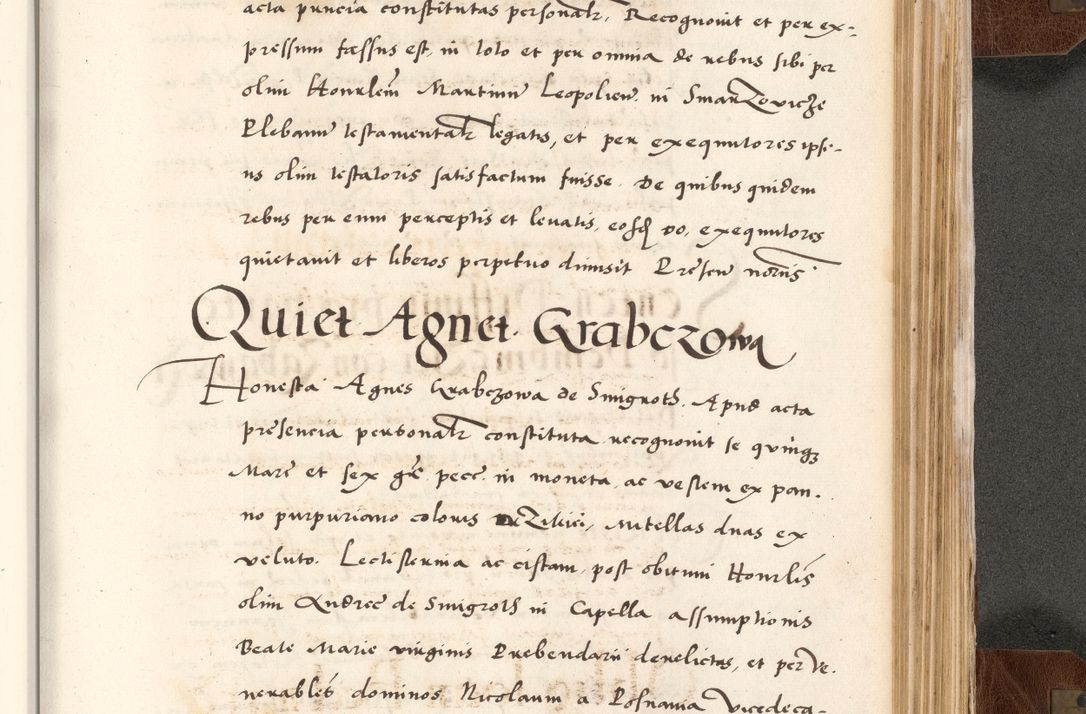 acta pñcia constitutas personałr, Recognouit et per ex-
pressum fassus est, in toto et per omnia de rebus sibi per
olim Honrlem Martinum Leopolien. in Smarzovicze
Plebanum testamentałr legatis, et per exequutores ipsi-
us olim testatoris satisfactum fuisse. De quibus quidem
rebus per eum perceptis et leuatis, eosd. po. exequutores
quietauit et liberos perpetuo dimisit Presen. notrijs
Quiet Agnet. Grabczowa
Honesta Agnes Grabczowa de Smigroth. Apud acta
presencia personałr constituta recognouit se quinq3
Marc et sex grc pecc. in moneta, ac vestem ex pan.
no purpuriano coloris Zilizei, mitellas duas ex
veluto. Lectisternia ac cistam, post obitum Honrlis
olim Andree de Smigroth in Capella assumptionis
Beate Marie virginis Prebendarii derelictas, et per Ve.
nerabiles dominos Nicolaum a Posnania Vicedeca-